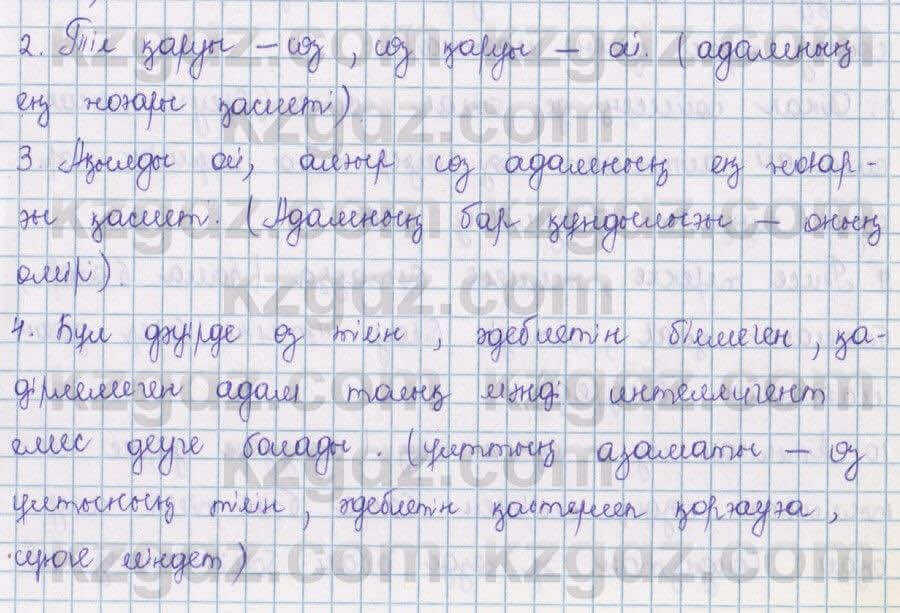 2. Тіл қаруы – сөз, сөз қаруы – ой. (адамның
ең жоғары қасиеті)
3. Ақылды ой, алғыр сөз адамның ең жоғар-
ғы қасиеті. (Адамның бар құндылығы – оның
өмірі).
4. Бұл дәуірде өз тілін, әдебиетін білмеген, қа-
дірлемеген адам толық мәнді интеллигент
емес деуге болады. (ұлттың азаматы – өз
ұлтының тілін, әдебиетін қастерлеп қорғауға,
сүюге міндет)
kzgdz.com